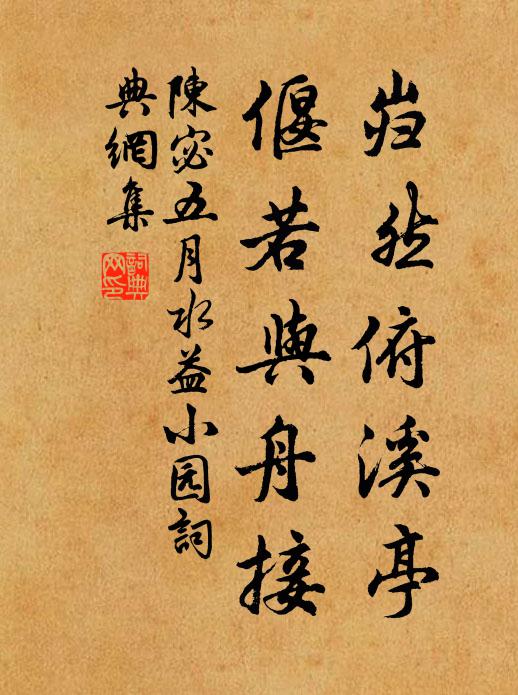 岿然俯溪亭
偃若與舟接
陳宓五月水益小园詞
典網集
詞典
网印